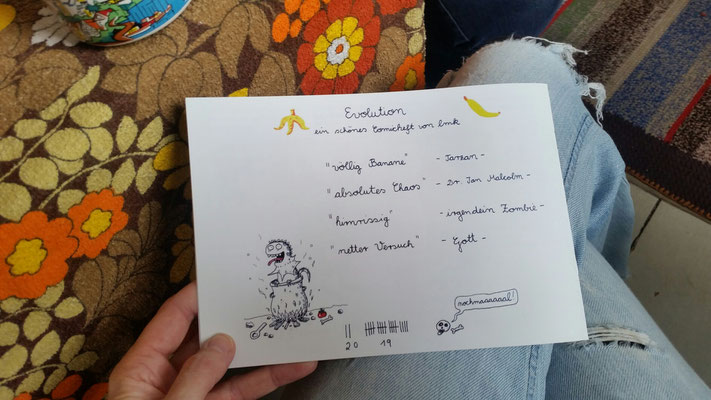 Evolution
ein schönes Comicheft von lmk
"völlig Banane" - Tarzan -
"absolutes Chaos" - Dr. Ian Malcolm -
"hirnrissig" - irgendein Zombie -
"netter Versuch" - Gott -
nochmaaaaaal!
20 19